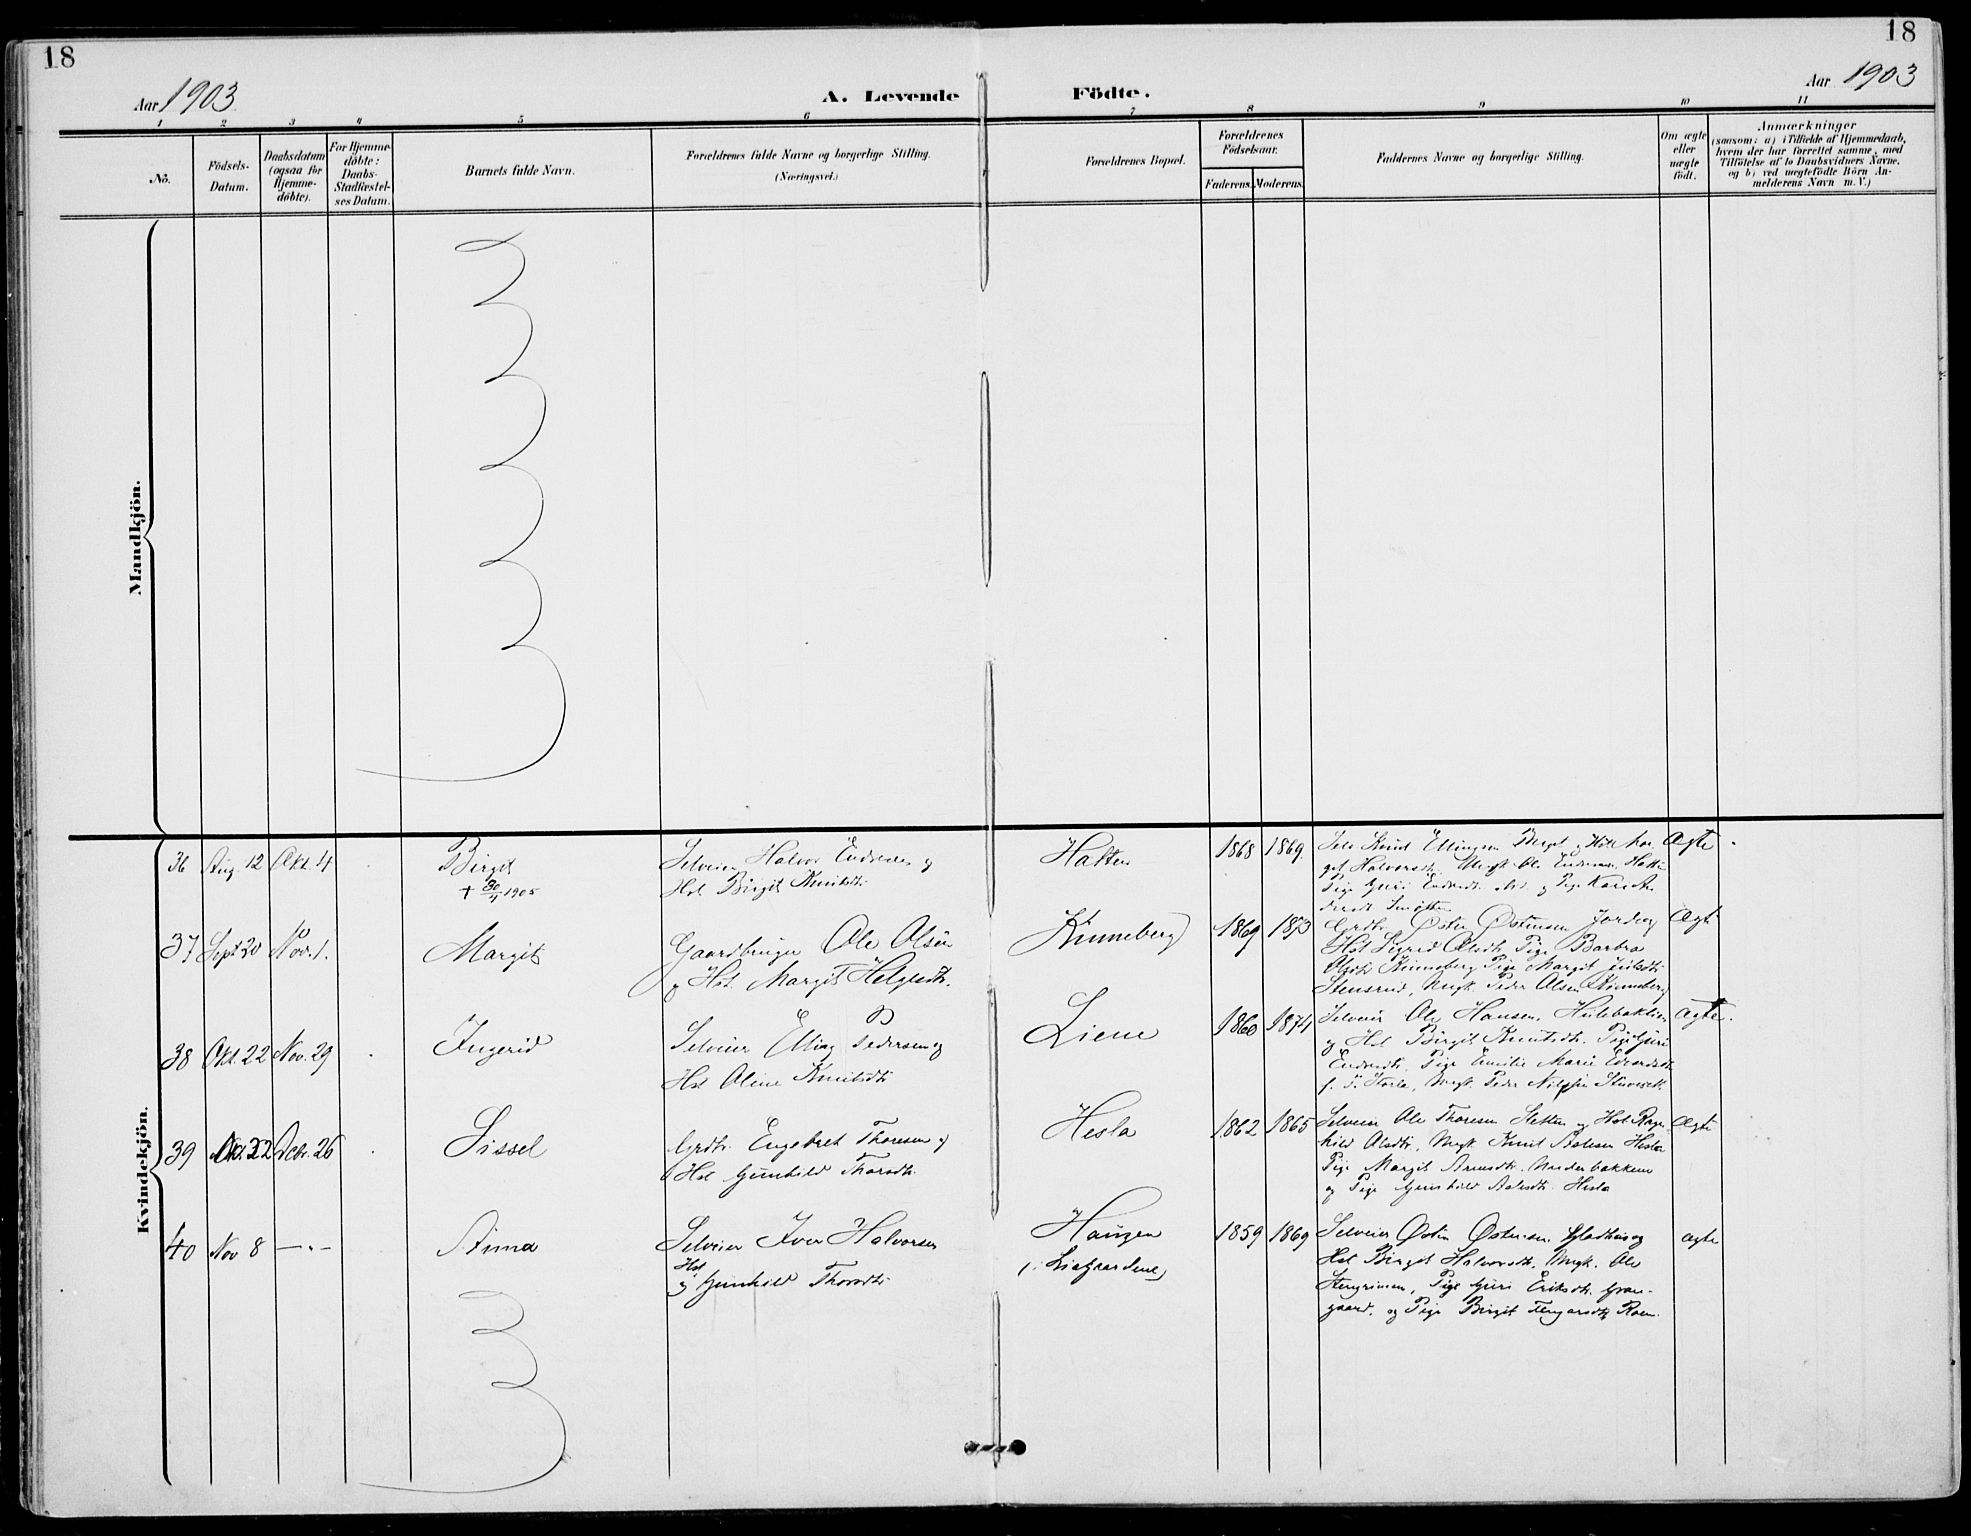 18
18
Aar 1903
A. Levende Födte.
Aar 1903
1 2 3 4 5 6 7 8 9 10 11
No.
Födsels-
Datum.
Daabsdatum
(ogsaa for
Hjemme-
döbte).
For Hjemme-
döbte:
Daabs-
Stadfæstel-
ses Datum.
Barnets fulde Navn.
Forældrenes fulde Navne og borgerlige Stilling.
(Næringsvei.)
Forældrenes Bopæl.
Forældrenes
Födselsaar.
Faderens. Moderens.
Faddernes Navne og borgerlige Stilling.
Om ægte
eller
uægte
födt.
Anmærkninger
(saasom: a) i Tilfælde af Hjemmedaab,
hvem der har forrettet samme, med
Tilföielse af to Daabsvidners Navne,
og b) ved uægtefödte Börn An-
melderens Navn m. V.)
Mandkjön.
Kvindekjön.
36 Aug. 12 Okt. 4
Birgit
+ 30/4 1905
Selveier Halvor Endresen og
Hst. Birgit Knutsdtr.
Hatten
1868 1869.
Selv. Knud Ellingsen
Halvorsdtr. Ungk. Ole Endresen Hatten
Pige Guri Endresdtr. og Pige Kari
Ægte
37 Sept 20 Nov. 1.
Margit
Gaardbruger Ole Olsen
og Hst. Margit Helgesdtr.
Kinneberg
1869 1873
Grdbr. Østen Østensen
Hst Sigrid Olsdtr. Pige Barbra
Olsdtr Kinneberg Pige Margit
Stensrud, Ungk. Peder Olsen Kinneberg
Ægte
38 Okt. 22 Nov. 29
Ingerid
Selveier Elling Pedersen og
Hst Oline Knutsdtr
Liene
1860 1874
Selveier Ole Hansen,
og Hst Birgit Knutsdtr. Pige Guri
Endresdtr, Pige Emilie Marie
Ungk. Peder Nilssen
Ægte.
39 22 Debr. 26
Sissel
Grdbr. Engebret Thoresen og
Hst Gunhild Thorsdtr.
Hesla
1862 1865
Selveier Ole Thoresen Sletten og Hst Ragn-
hild Olsdtr, Ungk Knut Hesla
Pige Margit Arnesdtr. Nordenbakken
og Pige Gunhild Hesla
Ægte
40 Nov 8 — " —
Anna
Selveier Iver Halvorsen
Hst
og Gunhild Thorsdtr
Haugen
1859 1869
Selveier Østen Østensen og
Hst Birgit Halvorsdtr. Ungk. Ole
Pige Guri Eriksdtr. Gran-
gaard. og Pige Birgit Roen.
ægte